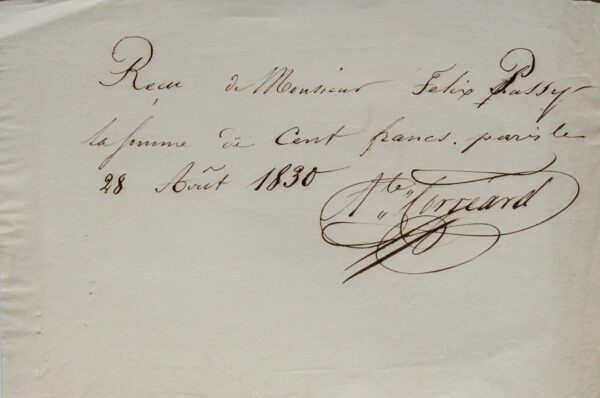 Reçu de Monsieur Felix Passy
la somme de Cent francs. paris le
28 Août 1830
Ate Corréard